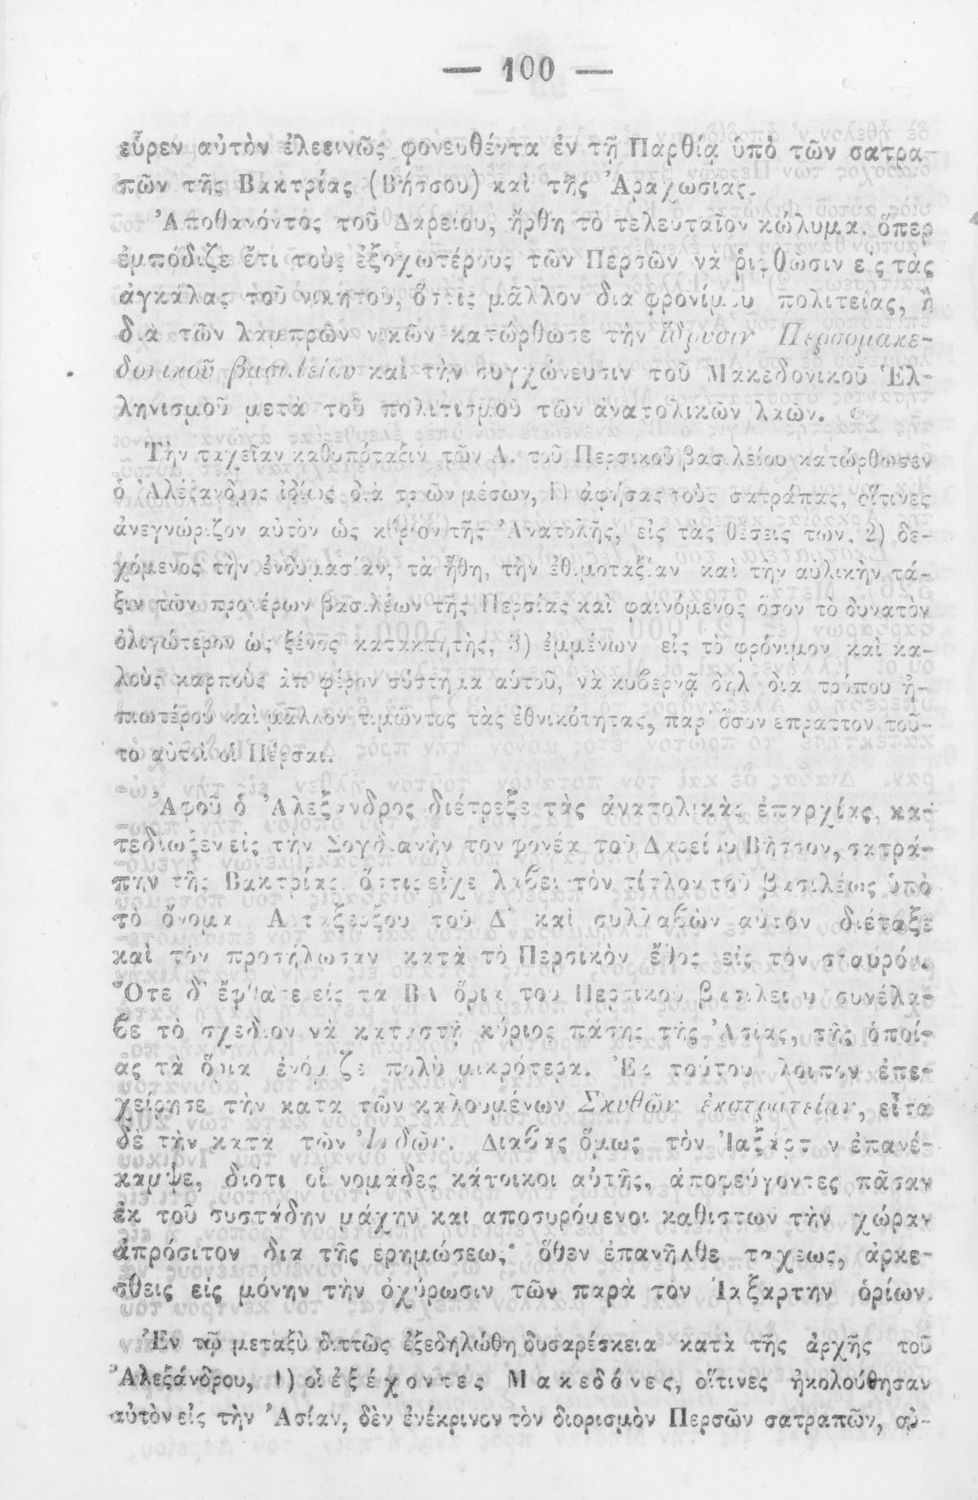 — 100 —
εὗρεν αὐτὸν ἐλεεινῶς φονευθέντα ἐν τῇ Παρθίᾳ ὑπὸ τῶν σατρα-
πῶν τῆς Βακτρίας (Βήσσου) καὶ τῆς Ἀραχωσίας.
Ἀποθανόντος τοῦ Δαρείου, ἤρθη τὸ τελευταῖον κώλυμα, ὅπερ
ἐμπόδιζε ἔτι τοὺς ἐξοχωτέρους τῶν Περσῶν νὰ ῥιφθῶσιν εἰς τὰς
ἀγκάλας τοῦ νικητοῦ, ὅστις μᾶλλον διὰ φρονίμου πολιτείας, ἢ
διὰ τῶν λαμπρῶν νικῶν κατώρθωσε τὴν ἵδρυσιν Περσομακε-
δονικοῦ βασιλείου καὶ τὴν συγχώνευσιν τοῦ Μακεδονικοῦ Ἑλ-
ληνισμοῦ μετὰ τοῦ πολιτισμοῦ τῶν ἀνατολικῶν λαῶν.
Τὴν ταχεῖαν καθυπόταξιν τῶν Α. τοῦ Περσικοῦ βασιλείου κατώρθωσεν
ὁ Ἀλέξανδρος ἰδίως διὰ τριῶν μέσων, 1) ἀφήσας τοὺς σατράπας, οἵτινες
ἀνεγνώριζον αὐτὸν ὡς κύριον τῆς Ἀνατολῆς, εἰς τὰς θέσεις των, 2) δε-
χόμενος τὴν ἐνδυμασίαν, τὰ ἤθη, τὴν ἐθιμοταξίαν καὶ τὴν αὐλικὴν τά-
ξιν τῶν προτέρων βασιλέων τῆς Περσίας καὶ φαινόμενος ὅσον τὸ δυνατὸν
ὀλιγώτερον ὡς ξένος κατακτητής, 3) ἐμμένων εἰς τὸ φρόνιμον καὶ κα-
λοὺς καρποὺς ἐπιφέρον σύστημα αὐτοῦ, νὰ κυβερνᾷ δηλ. διὰ τρόπου ἠ-
πιωτέρου καὶ μᾶλλον τιμῶντος τὰς ἐθνικότητας, παρ' ὅσον ἔπραττον τοῦ-
το αὐτοὶ οἱ Πέρσαι.
Ἀφοῦ ὁ Ἀλέξανδρος διέτρεξε τὰς ἀνατολικὰς ἐπαρχίας, κα-
τεδίωξεν εἰς τὴν Σογδιανὴν τὸν φονέα τοῦ Δαρείου Βῆσσον, σατρά-
πην τῆς Βακτρίας, ὅστις εἶχε λάβει τὸν τίτλον τοῦ βασιλέως ὑπὸ
τὸ ὄνομα Ἀρταξέρξου τοῦ Δ' καὶ συλλαβὼν αὐτὸν διέταξε
καὶ τὸν προσήλωσαν κατὰ τὸ Περσικὸν ἔθος εἰς τὸν σταυρόν.
Ὅτε δ' ἔφθασε εἰς τὰ ΒΑ ὅρια τοῦ Περσικοῦ βασιλείου συνέλα-
βε τὸ σχέδιον νὰ καταστῇ κύριος πάσης τῆς Ἀσίας, τῆς ὁποί-
ας τὰ ὅρια ἐνόμιζε πολὺ μικρότερα. Ἐκ τούτου λοιπὸν ἐπε-
χείρησε τὴν κατὰ τῶν καλουμένων Σκυθῶν ἐκστρατείαν, εἶτα
δὲ τὴν κατὰ τῶν Ἰνδῶν. Διαβὰς ὅμως τὸν Ἰαξάρτην ἐπανέ-
καμψε, διότι οἱ νομάδες κάτοικοι αὐτῆς, ἀποφεύγοντες πᾶσαν
ἐκ τοῦ συστάδην μάχην καὶ ἀποσυρόμενοι καθίστων τὴν χώραν
ἀπρόσιτον διὰ τῆς ἐρημώσεως· ὅθεν ἐπανῆλθε ταχέως, ἀρκε-
σθεὶς εἰς μόνην τὴν ὀχύρωσιν τῶν παρὰ τὸν Ἰαξάρτην ὁρίων.
Ἐν τῷ μεταξὺ διττῶς ἐξεδηλώθη δυσαρέσκεια κατὰ τῆς ἀρχῆς τοῦ
Ἀλεξάνδρου, 1) οἱ ἐξέχοντες Μακεδόνες, οἵτινες ἠκολούθησαν
αὐτὸν εἰς τὴν Ἀσίαν, δὲν ἐνέκρινον τὸν διορισμὸν Περσῶν σατραπῶν, οὐ-